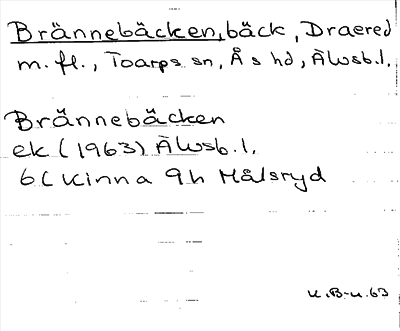 Brännebäcken, bäck, Draered
m.fl., Toarps sn, Ås hd, Älvsb.l.
Brännebäcken
ek (1963) Älvsb.l.
6C Kinna 9h Målsryd
K.B-n.63